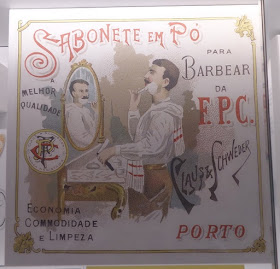 SABONETE EM PÓ
PARA
BARBEAR
DA
F.P.C.
A
MELHOR
QUALIDADE
CLAUS & SCHWEDER
ECONOMIA
COMMODIDADE
E LIMPEZA
PORTO